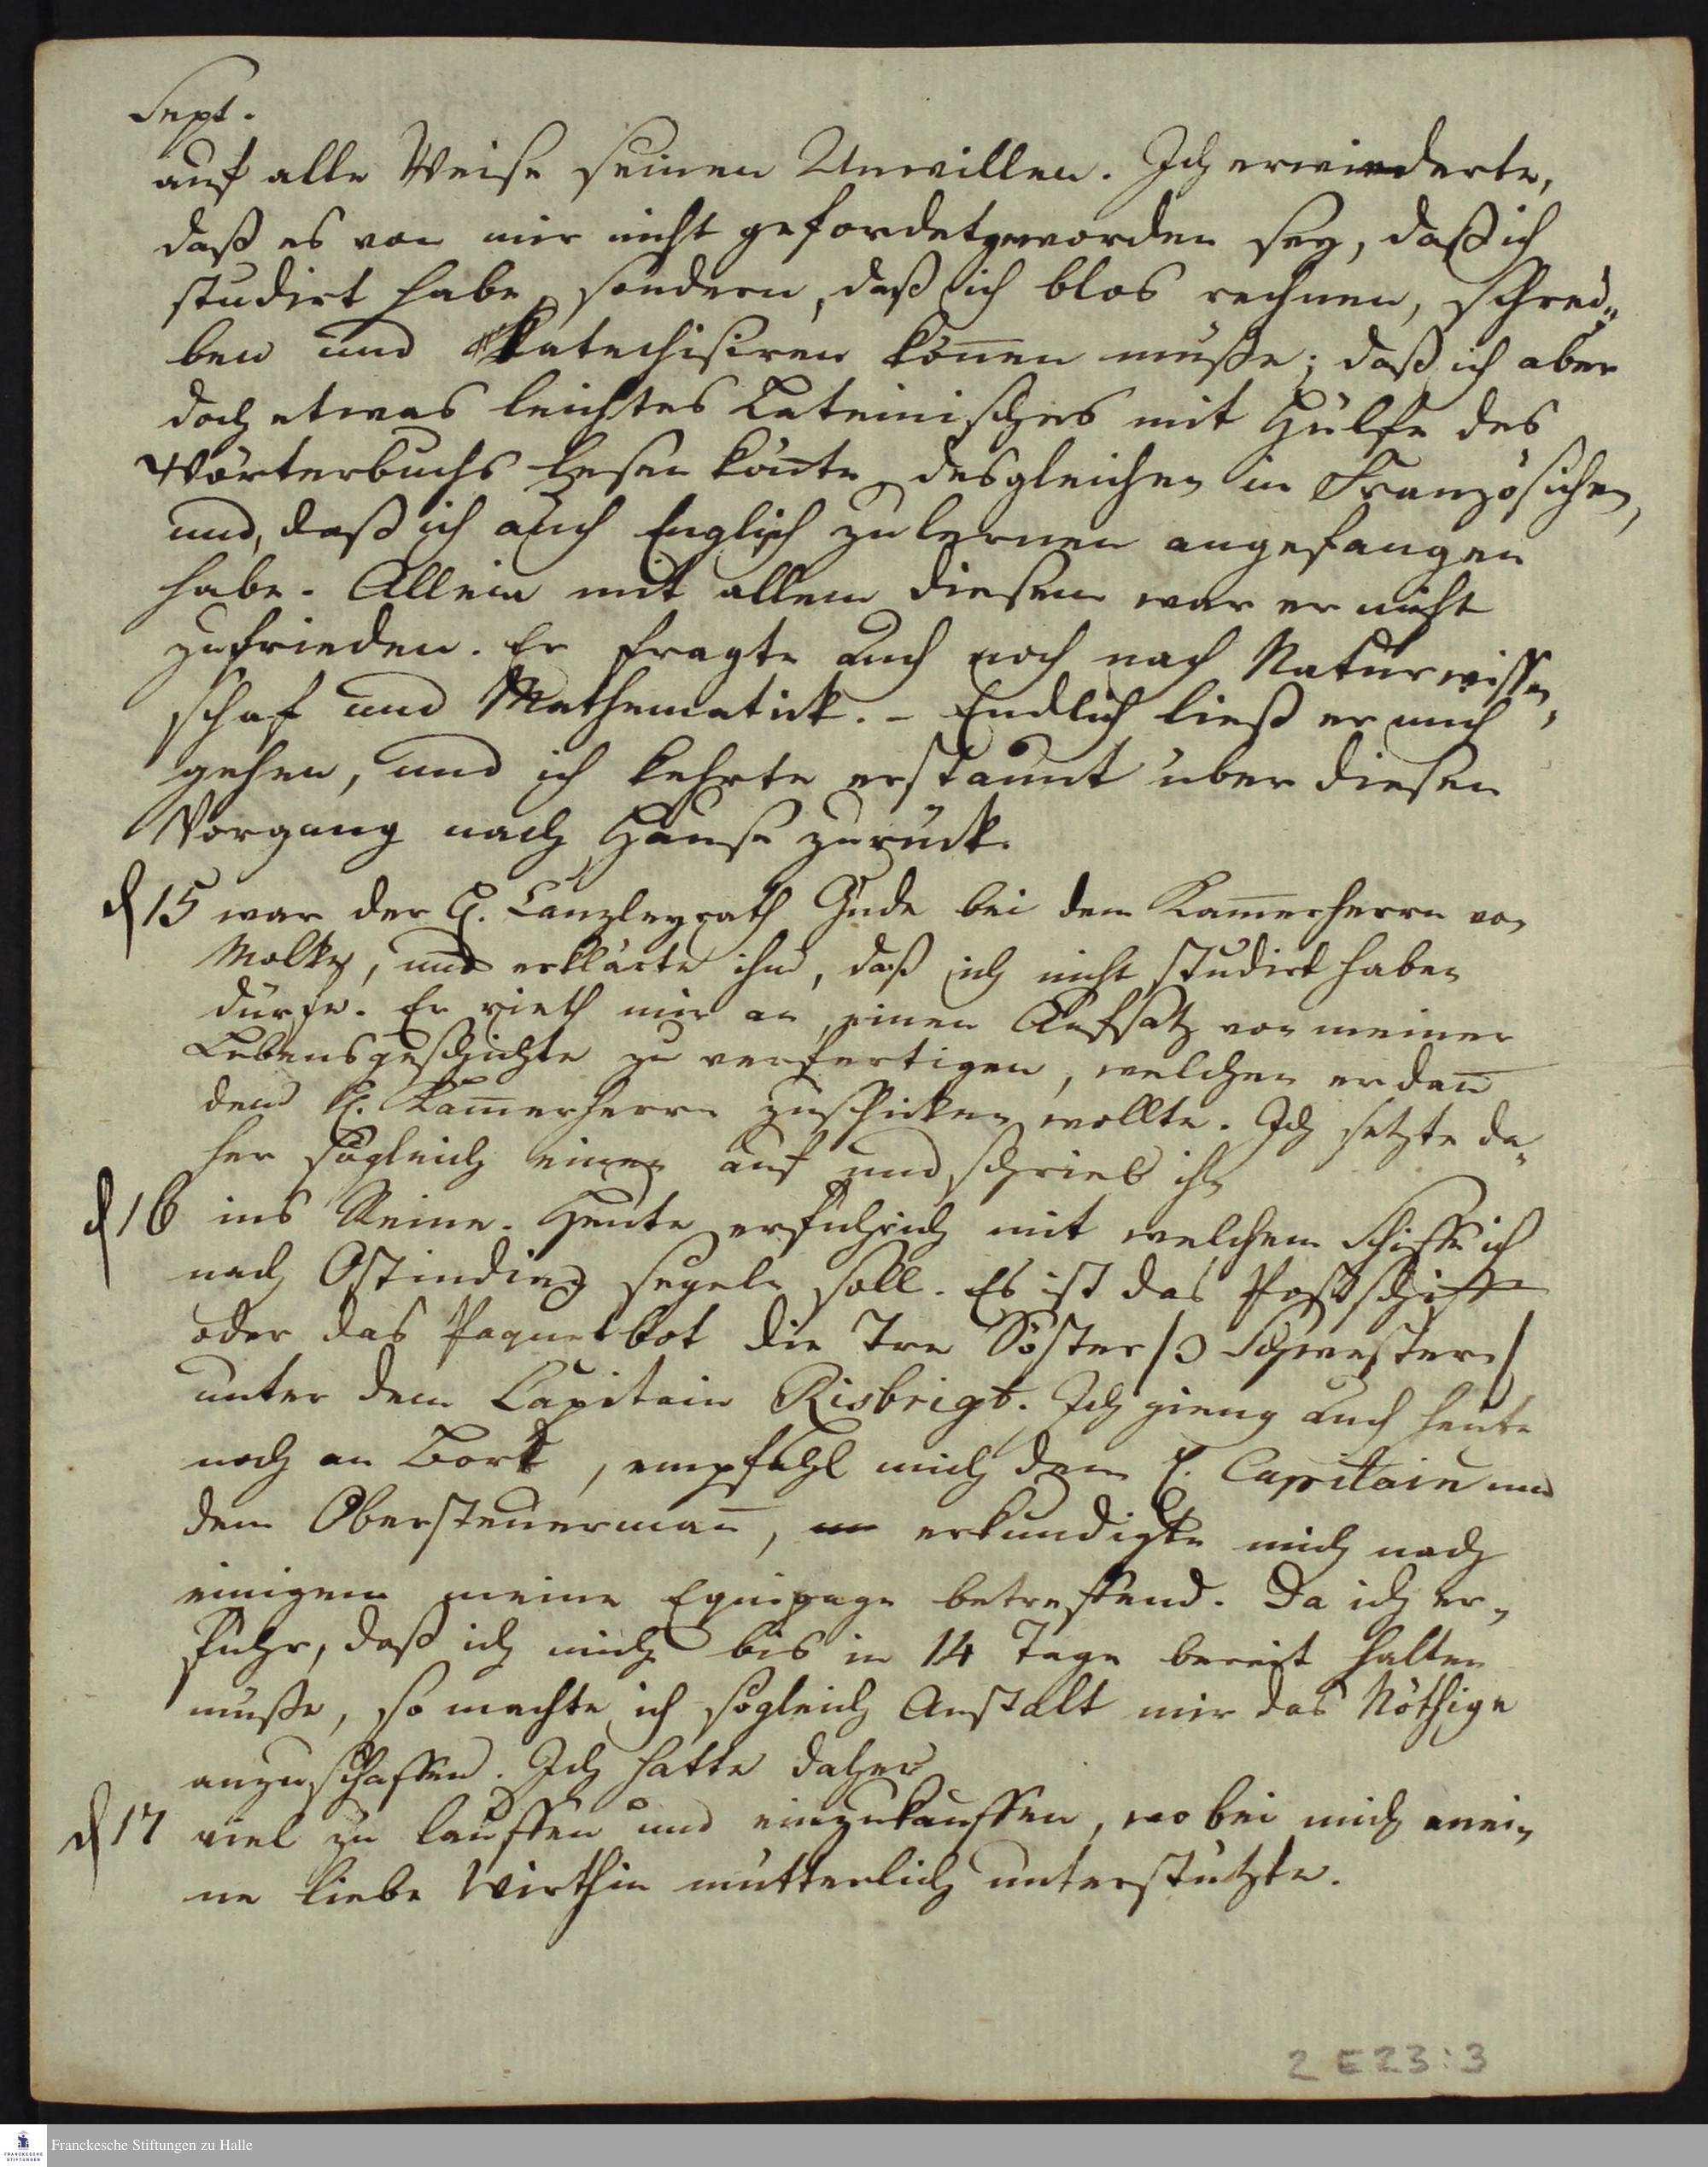 Sept.
auf alle Weise seinen Unwillen. Ich erwiederte,
daß es von mir nicht gefordet geworden sey, daß ich
studirt habe, sondern, daß ich blos rechnen, schrei„
ben und Katechisiren kön̅en müße; daß ich aber
doch etwas leichtes Lateinisches mit Hülfe des
Wörterbuchs lesen kön̅te, desgleichen im Französischen,
und, daß ich auch Englisch zu lernen angefangen
habe. Allein mit allem diesem war er nicht
zufrieden. Er fragte auch noch nach Naturwissen„
schaf und Mathematick. – Endlich ließ er mich
gehen, und ich kehrte erstaunt über diesen
Vorgang nach Hause zurück.
d 15 war der H. Canzleyrath Gude bei dem Kam̅erherrn von
Molky, und erklärte ihm, daß ich nicht studirt haben
dürfe. Er rieth mir an, einen Aufsatz von meiner
Lebensgeschichte zu verfertigen, welchen er dan̅
dem H. Kam̅erherrn zuschicken wollte. Ich setzte da„
her sogleich einen auf und schrieb ihn
d 16 ins Reine. Heute erfuhr ich mit welchem Schiffe ich
nach Ostindien segeln soll. Es ist das Postschiff
oder das Paquetbot die Tre Söster /3 Schwestern/
unter dem Capitain Risbrigt. Ich gieng auch heute
noch an Bort, empfahl mich dem H. Capitain und
dem Obersteuerman̅, erkundigte mich nach
einigem meine Equipage betreffend. Da ich er„
fuhr, daß ich mich bis in 14 Tage bereit halten
müße, so machte ich sogleich Anstalt mir das Nöthige
anzuschaffen. Ich hatte daher
d 17 viel zu lauffen und einzukauffen, wobei mich mei„
ne liebe Wirthin mütterlich unterstützte.
2 E 23 : 3
FRANCKESCHE STIFTUNGEN
Franckesche Stiftungen zu Halle